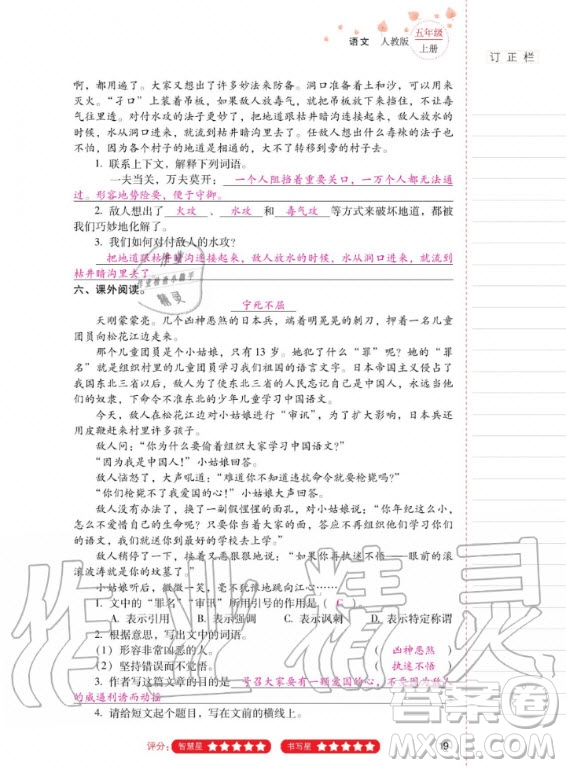 语文 人教版 五年级 上册
订 正 栏
啊，都用遍了。大家又想出了许多妙法来防备。洞口准备着土和沙，可以用来
灭火。“孑口”上装着吊板，如果敌人放毒气，就把吊板放下来挡住，不让毒
气往里透。对付水攻的法子更妙了，把地道跟枯井暗沟连接起来，敌人放水的
时候，水从洞口进来，就流到枯井暗沟里去了。任敌人想出什么毒辣的法子也
不怕，因为各村子的地道是相通的，大不了转移到旁的村子去。
1. 联系上下文，解释下列词语。
一夫当关，万夫莫开：一个人阻挡着重要关口，一万个人都无法通
过。形容地势险要，便于守御。
2. 敌人想出了 火攻 、 水攻 和 毒气攻 等方式来破坏地道，都被
我们巧妙地化解了。
3. 我们如何对付敌人的水攻？
把地道跟枯井暗沟连接起来，敌人放水的时候，水从洞口进来，就流到
枯井暗沟里去了。
六、课外阅读。
宁死不屈
天刚蒙蒙亮。几个凶神恶煞的日本兵，端着明晃晃的刺刀，押着一名儿童
团员向松花江边走来。
那个儿童团员是个小姑娘，只有 13 岁。她犯了什么“罪”呢？她的“罪
名”就是组织村里的孩子们学习祖国的语言文字。日本帝国主义侵占了
我国东北三省以后，为了使东北三省的人民忘记自己是中国人，永远当他
们的奴隶，下命令不准东北的少年儿童学习中国语文。
今天，敌人在松花江边对小姑娘进行“审讯”，为了扩大影响，日本兵还
用皮鞭赶来村里许多孩子。
敌人问：“你为什么要偷着组织大家学习中国语文？”
“因为我是中国人！”小姑娘回答。
敌人恼怒了，大声吼道：“难道你不知道违抗我们就要枪毙吗？”
“你们枪毙不了我爱国的心！”小姑娘大声回答。
敌人没有办法，换了一副假惺惺的面孔，对小姑娘说：“你年纪这么小，
怎么不爱惜自己的生命呢？只要你当着大家的面，答应不再组织他们学习你们
的语文，就可以送你到最好的学校去上学。”
敌人停了一下，又恶狠狠地说：“如果你再执迷不悟——眼前的滚
滚波涛就是你的坟墓了。”
小姑娘听后，微微一笑，毫不犹豫地跳向江心……
1. 文中的“罪名”“审讯”所用引号的作用是（ C ）
A. 表示引用 B. 表示强调 C. 表示讽刺 D. 表示特定称谓
2. 根据意思，写出文中的词语。
（1）形容非常凶恶的人。（ 凶神恶煞 ）
（2）坚持错误而不觉悟。（ 执迷不悟 ）
3. 作者写这篇文章的目的是 号召大家要有一颗爱国的心，不要因为敌人
的威逼利诱而动摇
4. 请给短文起个题目，写在文前的横线上。
评分： 智慧星 ★★★★★ 书写星 ★★★★★
19
作业精灵
答案卷